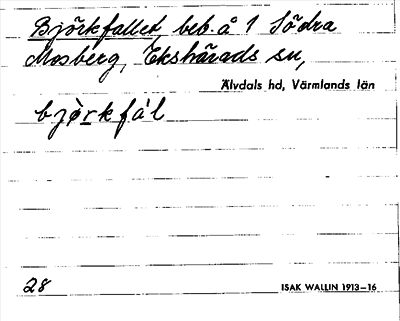 Björkfallet, beb. å 1 Södra
Mosberg, Ekshärads sn,
Älvdals hd, Värmlands län
björkfál
28 ISAK WALLIN 1913–16